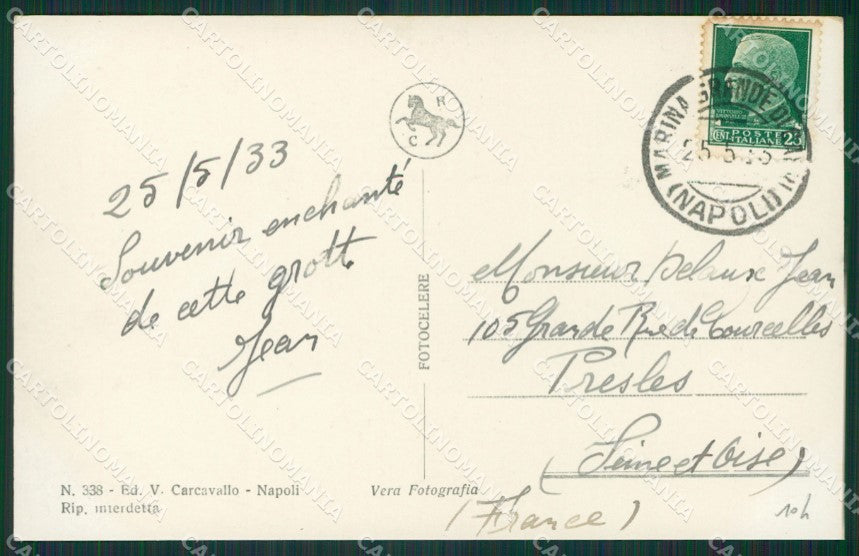 25/5/33
Souvenir enchanté
de cette grotte
Jean
N. 338 - Ed. V. Carcavallo - Napoli
Rip. interdetta
FOTOCELERE
Vera Fotografia
R
C C
POSTE
CENT ITALIANE 25
MARINA GRANDE DI
25.5.33
(NAPOLI)
Monsieur Delaux Jean
105 Grande Rue de Courcelles
Presles
(Seine et Oise)
(France)
10h
CARTOLINOMANIA